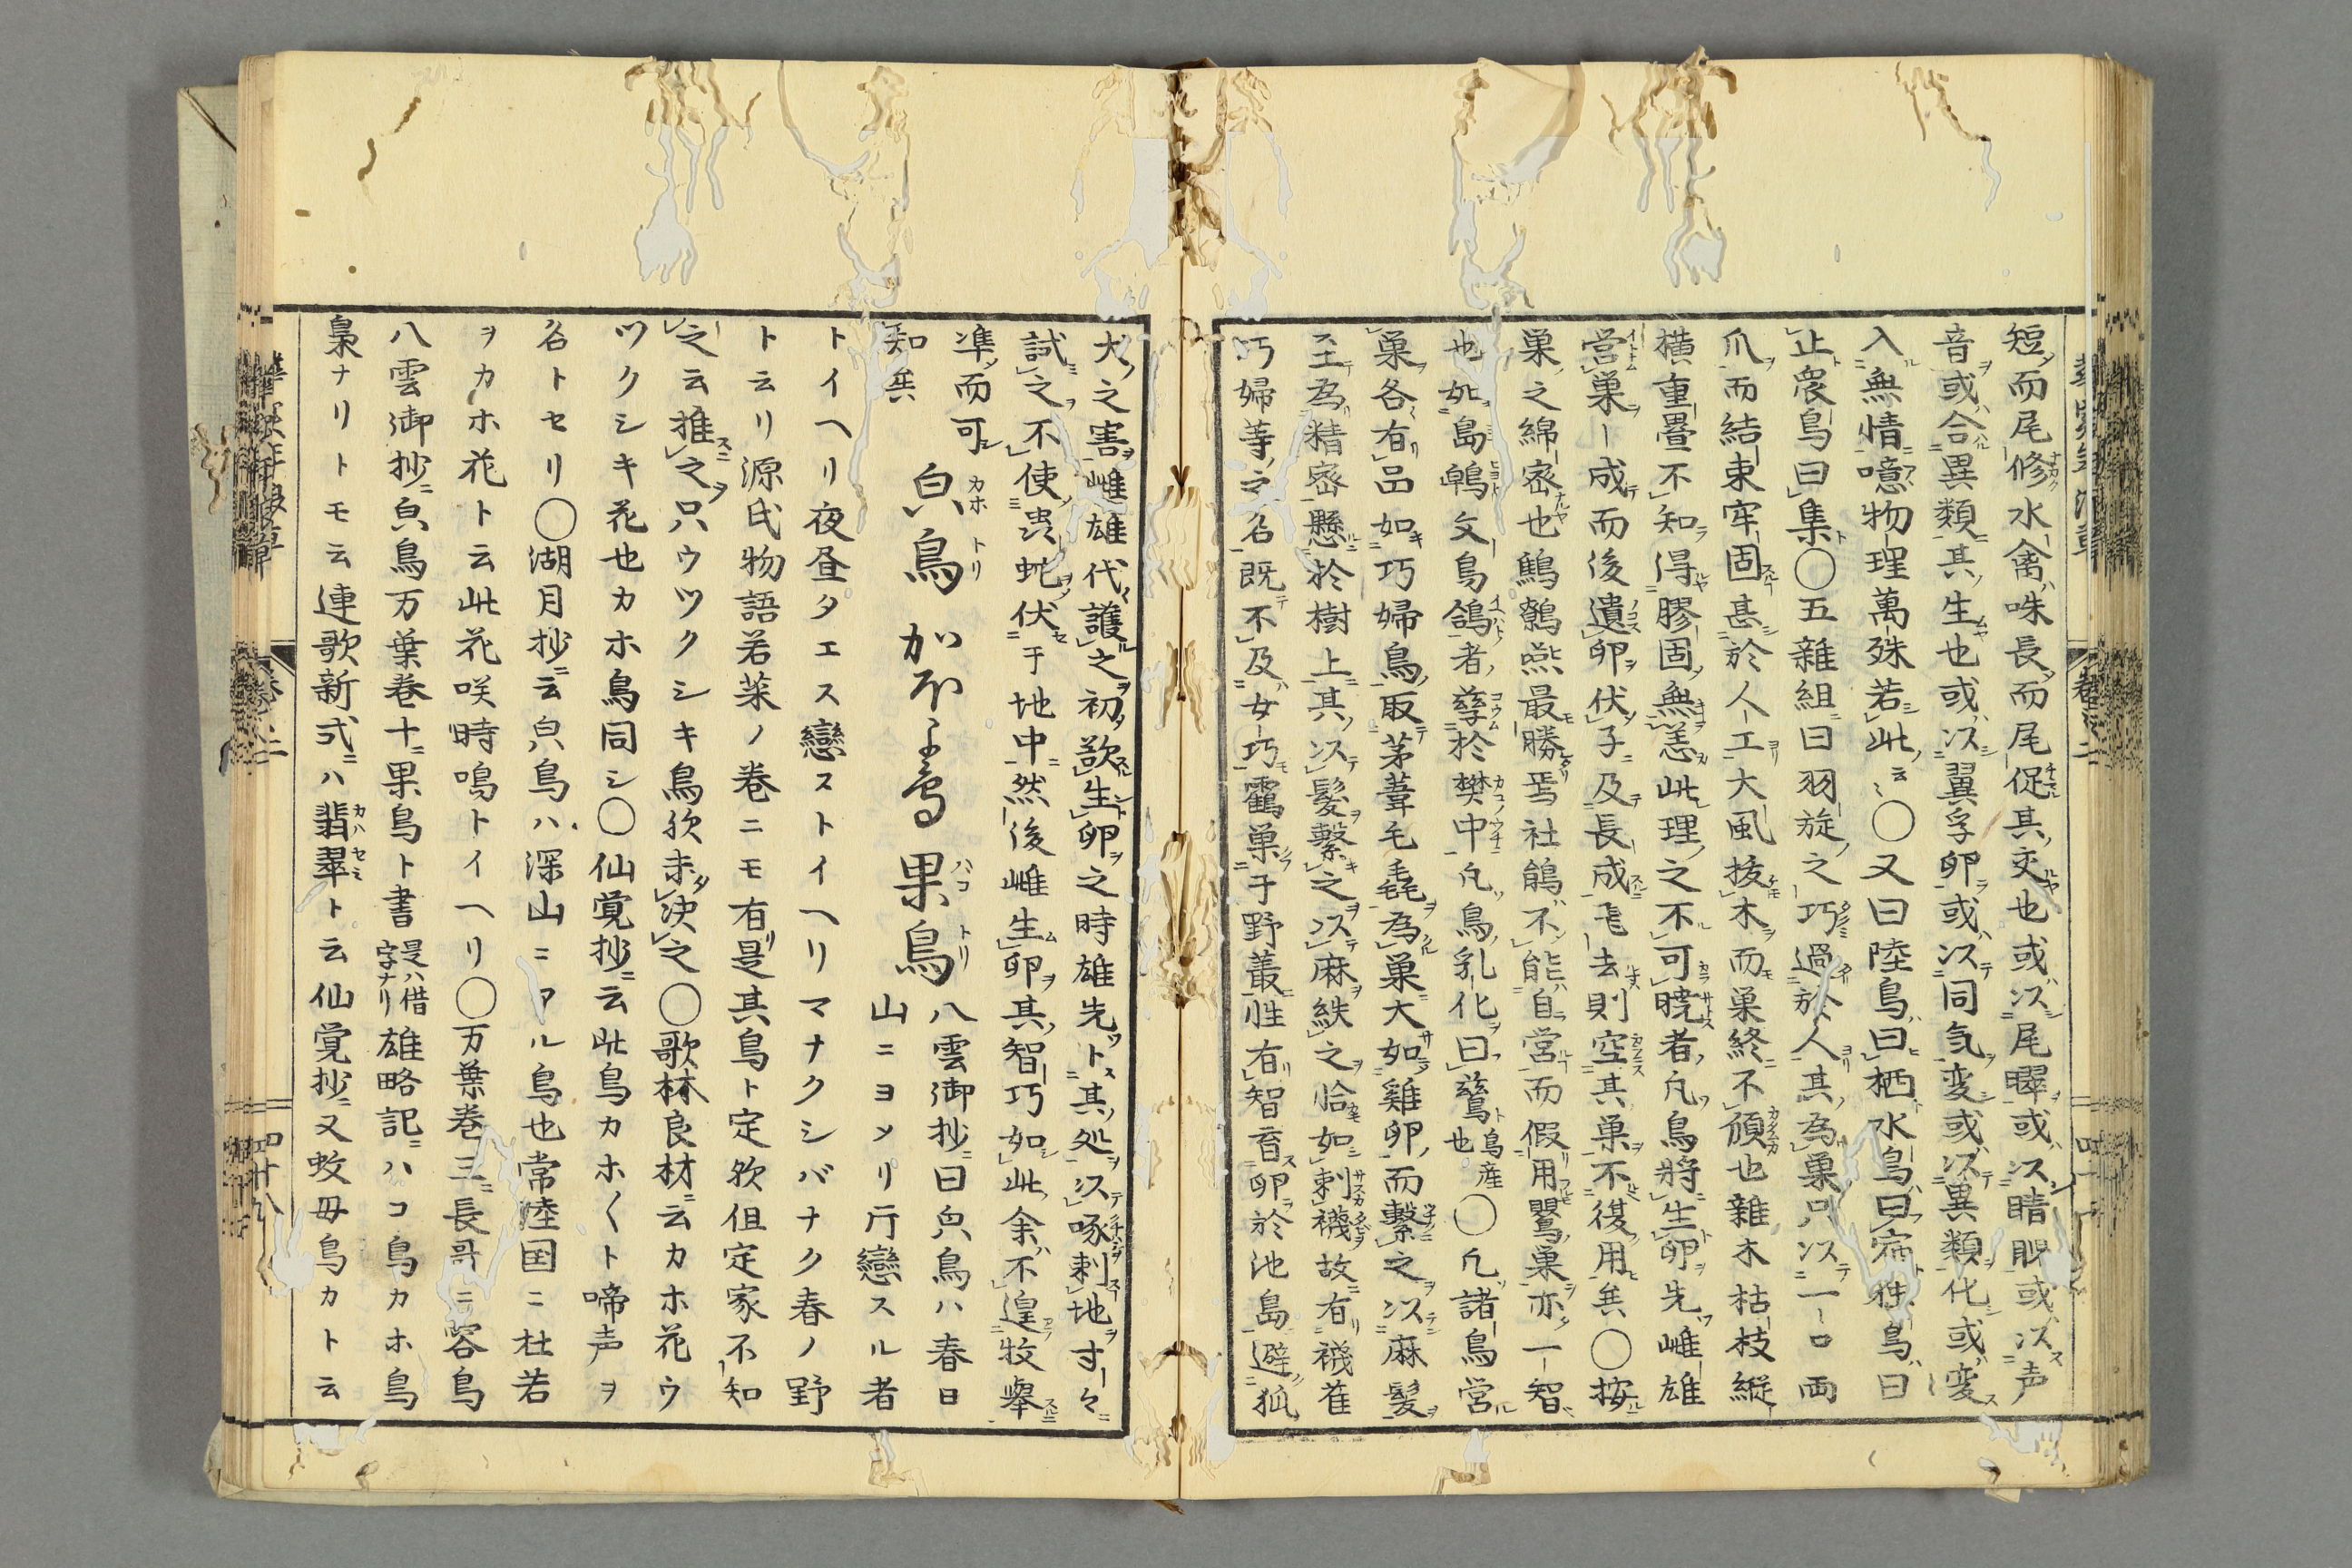 短而尾修水禽咮長而尾促其交也或以尾臎或以睛睨或以声
音或合異類其生也或以翼孚卵或以同気変或以異類化或変
入無情噫物理萬殊若此云〻○又曰陸鳥曰栖水鳥曰宿独鳥曰
止衆鳥曰集○五雜組曰羽族之巧過於人其為巢只以一口両
爪而結束牢固甚於人工大風抜木而巢終不傾也雜木枯枝縦
横重疊不知得膠固無恙此理之不可暁者凡鳥將生卵先雌雄
営巣成而後遺卵伏子及長成飛去則空其巣不復用矣○按
巣之綿密也鷦鷯燕最勝焉社鵑不能自営而假用鸎巣亦一智
也如島鵯文鳥鴿者孳於樊中凡鳥乳化曰鷇鳥産也○凡諸鳥営
巣各有品如巧婦鳥取茅葦毛毳為巣大如雞卵而繫之以麻髮
至為精密懸於樹上其以髮繫之以麻紩之恰如刺襪故有襪雀
巧婦等之名既不及女巧鸛巣于野叢性有智育卵於池島避狐
犬之害雌雄代護之初欲生卵之時雄先卜其処以啄剌地寸々
試之不使虫蛇伏于地中然後雌生卵其智巧如此余不遑枚舉
準而可
知矣
皃鳥 加保止利 果鳥 八雲御抄曰皃鳥ハ春日
山ニヨメリ片戀スル者
トイヘリ夜昼タエス戀ストイヘリマナクシバナク春ノ野
ト云リ源氏物語若菜ノ巻ニモ有是其鳥ト定欤伹定家不知
之云推之只ウツクシキ鳥欤未決之○歌林良材ニ云カホ花ウ
ツクシキ花也カホ鳥同シ○仙覚抄ニ云此鳥カホ〱ト啼声ヲ
名トセリ○湖月抄ニ云皃鳥ハ深山ニアル鳥也常陸国ニ杜若
ヲカホ花ト云此花咲時鳴トイヘリ○万葉巻三長哥ニ容鳥
八雲御抄ニ皃鳥万葉巻十ニ果鳥ト書是ハ借字ナリ雄略記ニハコ鳥カホ鳥
梟ナリトモ云連歌新式ニハ翡翠ト云仙覚抄ニ又蚊母鳥カト云